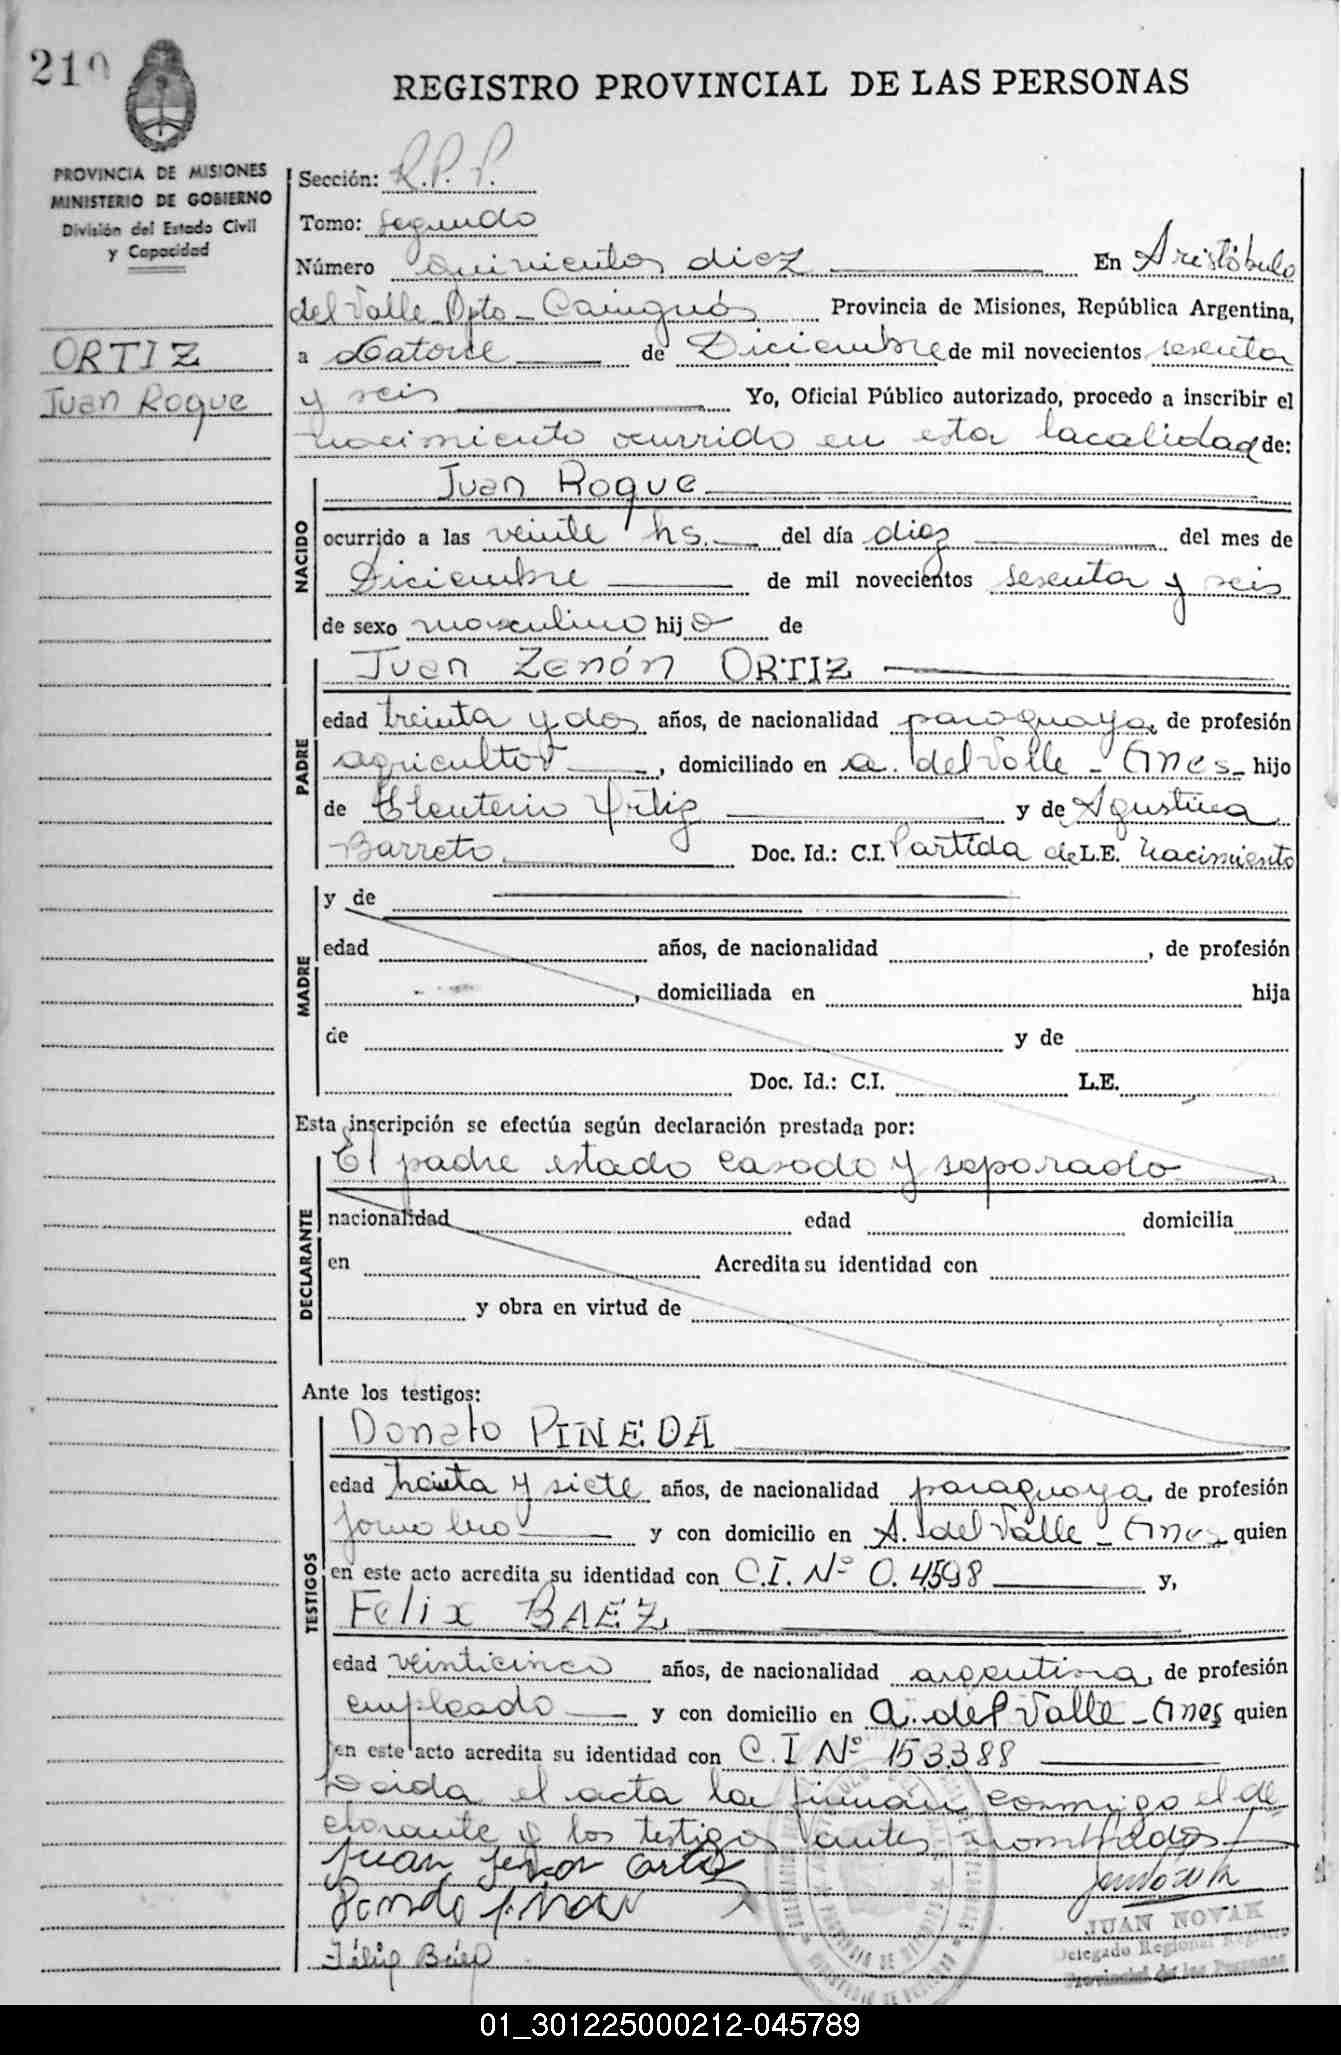 210
REGISTRO PROVINCIAL DE LAS PERSONAS
PROVINCIA DE MISIONES
MINISTERIO DE GOBIERNO
División del Estado Civil
y Capacidad
ORTIZ
Juan Roque
Sección: R.P.P.
Tomo: Segundo
Número quinientos diez En Aristóbulo
del Valle Dpto - Cainguás Provincia de Misiones, República Argentina,
a Catorce de Diciembre de mil novecientos sesenta
y seis Yo, Oficial Público autorizado, procedo a inscribir el
nacimiento ocurrido en esta localidad de:
NACIDO
Juan Roque
ocurrido a las veinte hs. del día diez del mes de
Diciembre de mil novecientos sesenta y seis
de sexo masculino hijo de
PADRE
Juan Zenón ORTIZ
edad treinta y dos años, de nacionalidad paraguaya, de profesión
agricultor, domiciliado en a. del Valle - Mnes - hijo
de Eleuterio Ortiz y de Agustina
Barreto Doc. Id.: C.I. Partida de L.E. Nacimiento
MADRE
y de
edad años, de nacionalidad , de profesión
, domiciliada en hija
de y de
Doc. Id.: C.I. L.E.
Esta inscripción se efectúa según declaración prestada por:
DECLARANTE
El padre estado casado y separado
nacionalidad edad domicilia
en Acredita su identidad con
y obra en virtud de
Ante los testigos:
TESTIGOS
Donato PINEDA
edad treinta y siete años, de nacionalidad paraguaya, de profesión
jornalero y con domicilio en A. del Valle - Mnes quien
en este acto acredita su identidad con C.I. Nº 0.4598 y,
Felix BAEZ
edad veinticinco años, de nacionalidad argentina, de profesión
empleado y con domicilio en a. del Valle - Mnes quien
en este acto acredita su identidad con C.I Nº 153.388
Leida el acta la firman conmigo el de
clarante y los testigos antes nombrados
Juan Zenon Ortiz
Félix Báez
JUAN NOVAK
Delegado Regional Registro
Provincial de las Personas
01_301225000212-045789